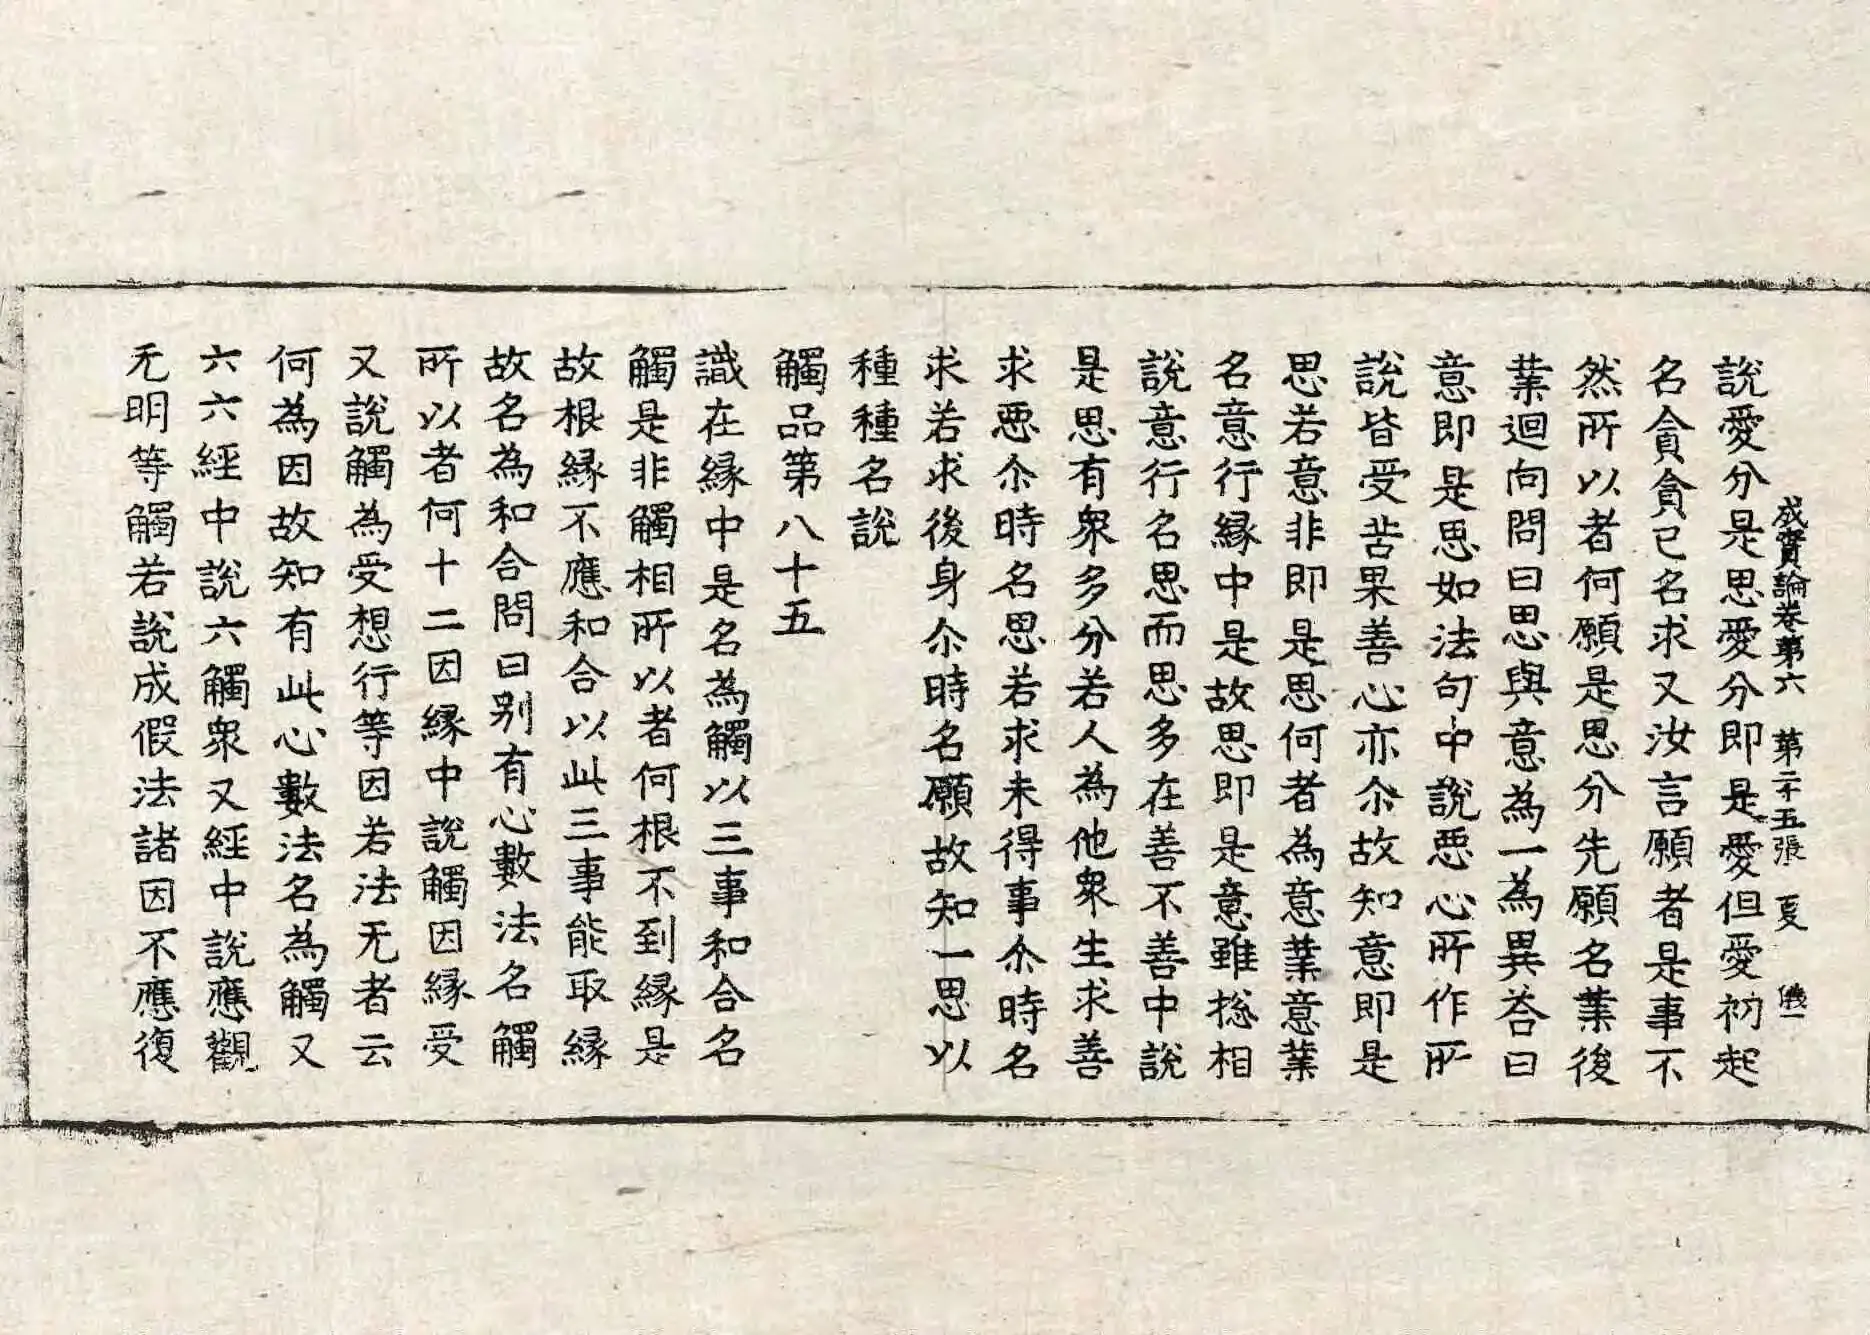 成實論卷第六　第二十五張　夏　儀一
說愛分是思愛分即是愛但愛初起
名貪貪已名求又汝言願者是事不
然所以者何願是思分先願名業後
業迴向問曰思與意為一為異荅曰
意即是思如法句中說惡心所作所
說皆受苦果善心亦尒故知意即是
思若意非即是思何者為意業意業
名意行縁中是故思即是意雖捴相
說意行名思而思多在善不善中說
是思有衆多分若人為他衆生求善
求惡尒時名思若求未得事尒時名
求若求後身尒時名願故知一思以
種種名說
觸品第八十五
識在縁中是名為觸以三事和合名
觸是非觸相所以者何根不到縁是
故根縁不應和合以此三事能取縁
故名為和合問曰别有心數法名觸
所以者何十二因縁中說觸因縁受
又說觸為受想行等因若法无者云
何為因故知有此心數法名為觸又
六六經中說六觸衆又經中說應觀
无明等觸若說成假法諸因不應復